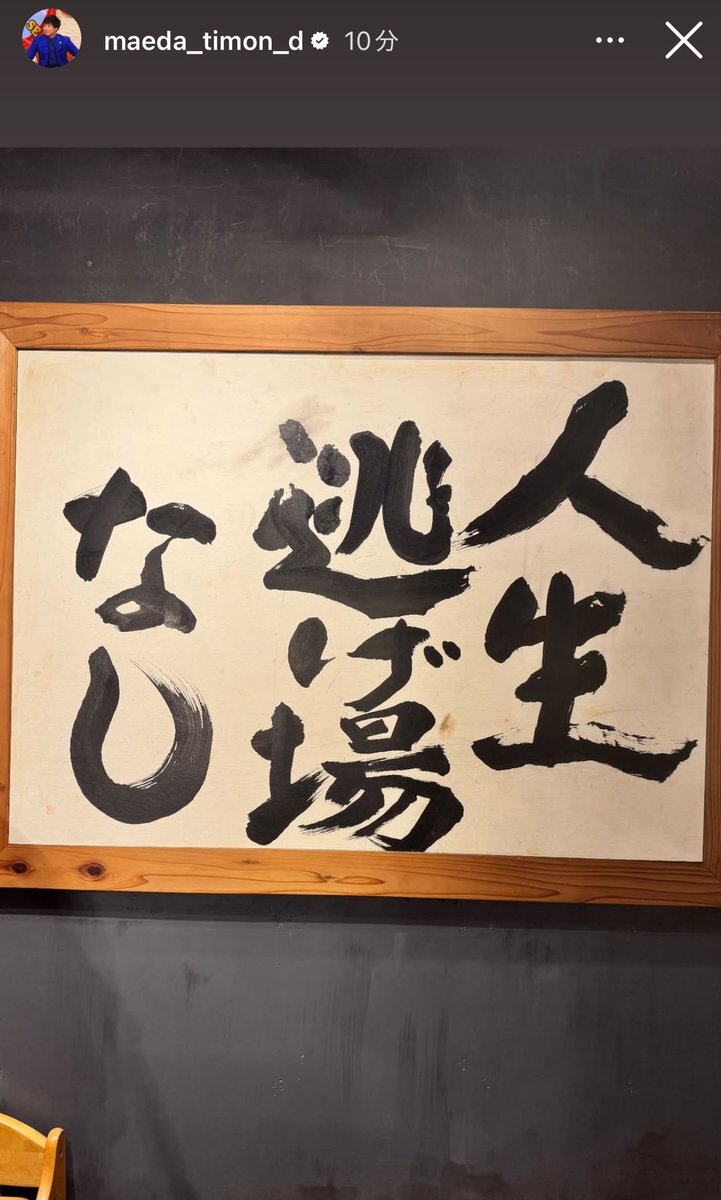 maeda_timon_d 10分
人生
逃げ場
なし